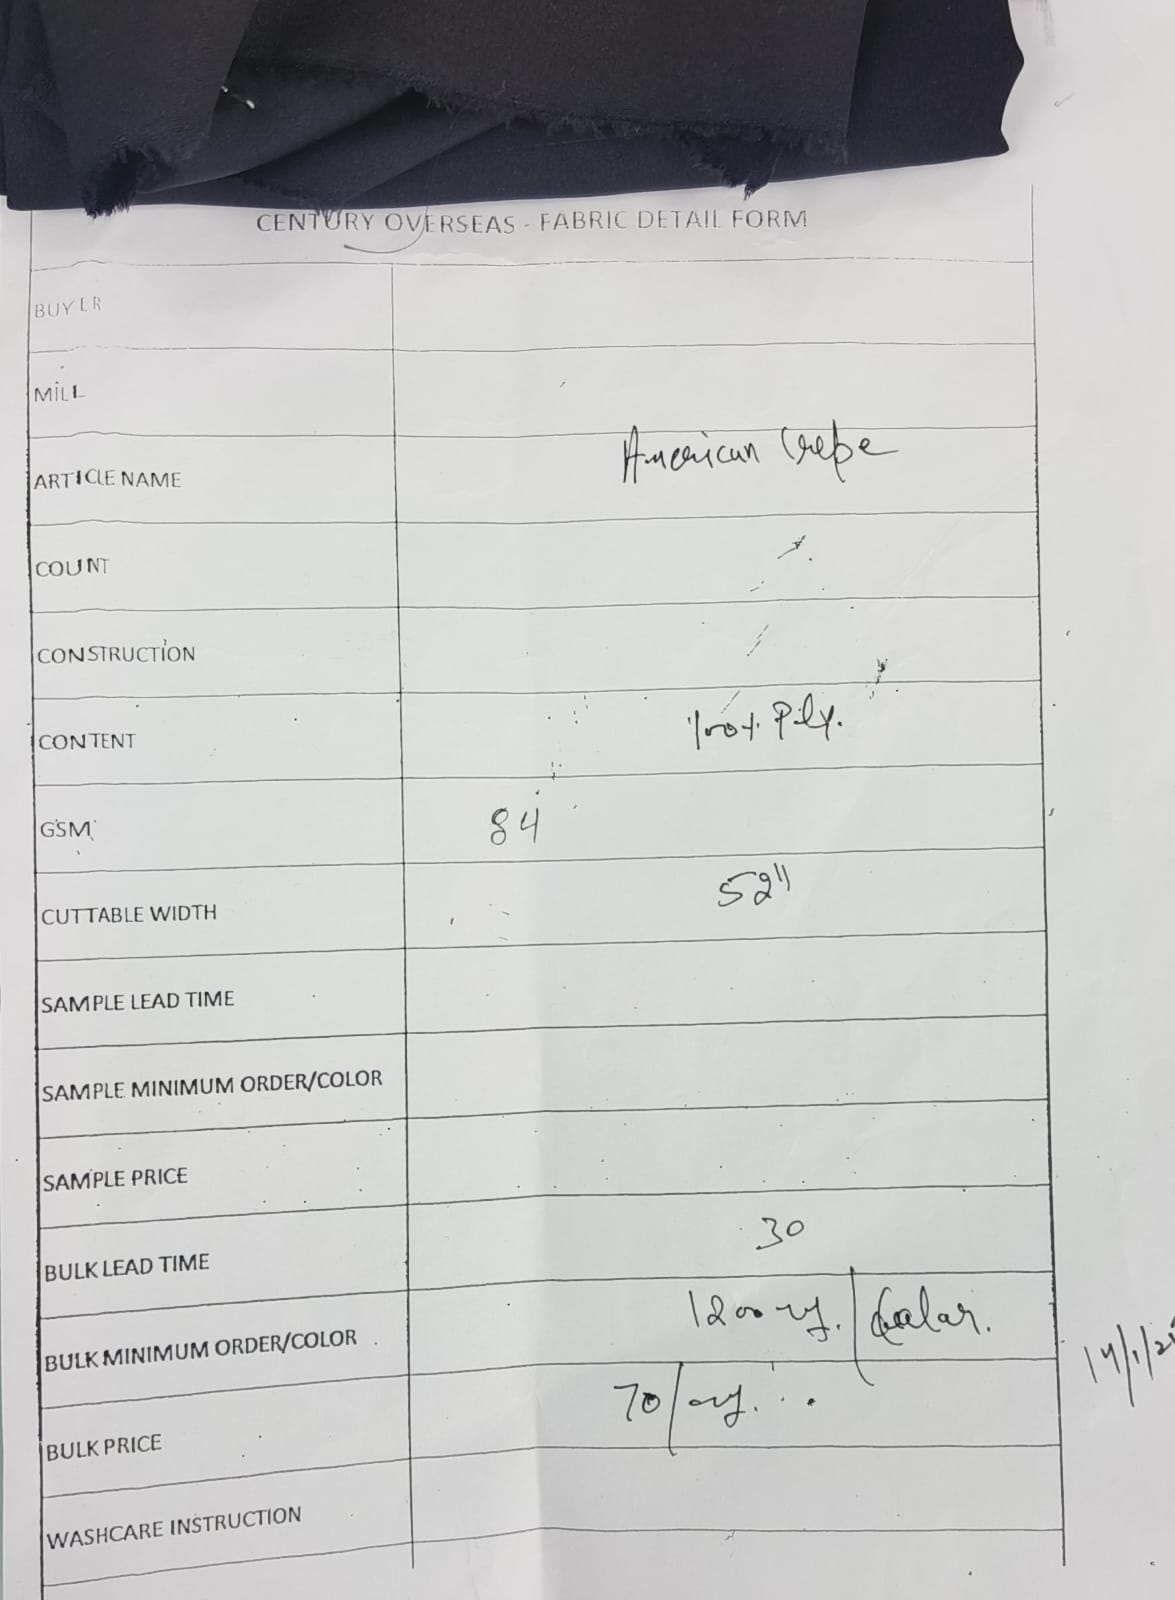 CENTURY OVERSEAS - FABRIC DETAIL FORM
BUYER
MILL
ARTICLE NAME American Crepe
COUNT
CONSTRUCTION
CONTENT 100% Poly.
GSM 84
CUTTABLE WIDTH 52"
SAMPLE LEAD TIME
SAMPLE MINIMUM ORDER/COLOR
SAMPLE PRICE
BULK LEAD TIME 30
BULK MINIMUM ORDER/COLOR 1200 / Color.
BULK PRICE 70/
WASHCARE INSTRUCTION